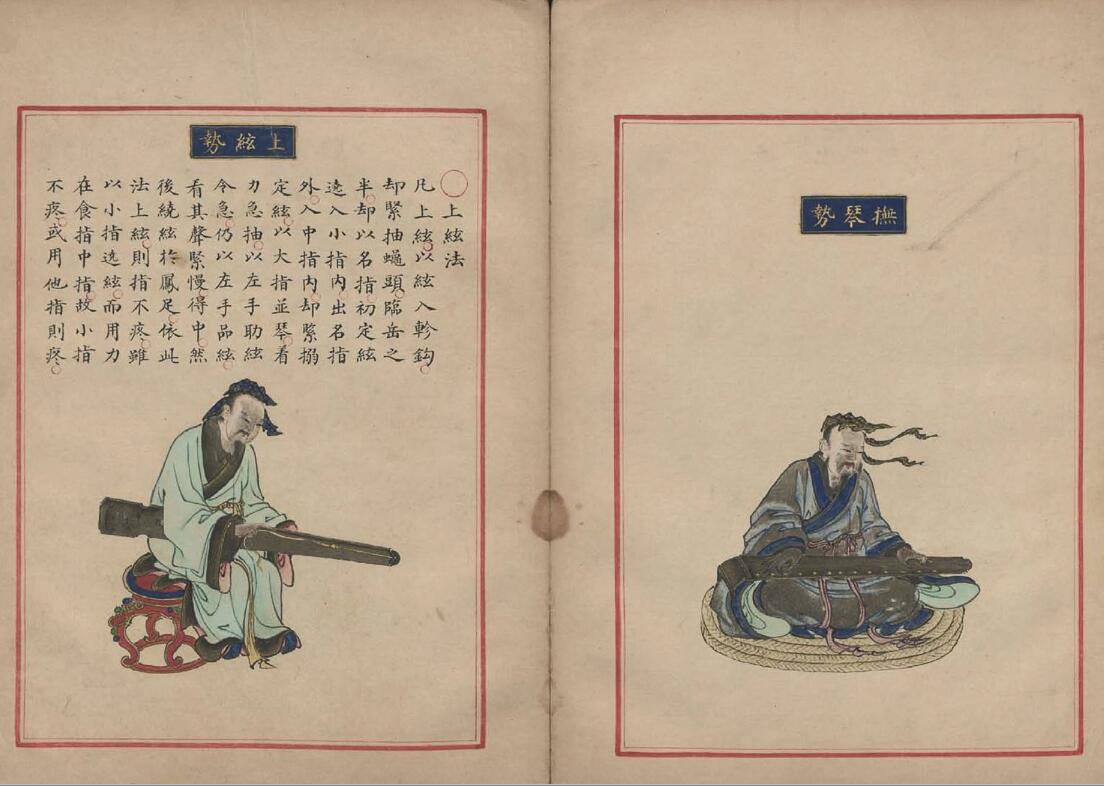 撫琴勢
上絃勢
○上絃法
凡上絃以絃入軫鈎
却緊抽蠅頭臨岳之
半却以名指初定絃
遶入小指內出名指
外入中指內却緊搦
定絃以大指並琴看
力急抽以左手助絃
令急仍以左手品絃
看其聲緊慢得中然
後繞絃於鳳足依此
法上絃則指不疼雖
以小指遶絃而用力
在食指中指故小指
不疼或用他指則疼